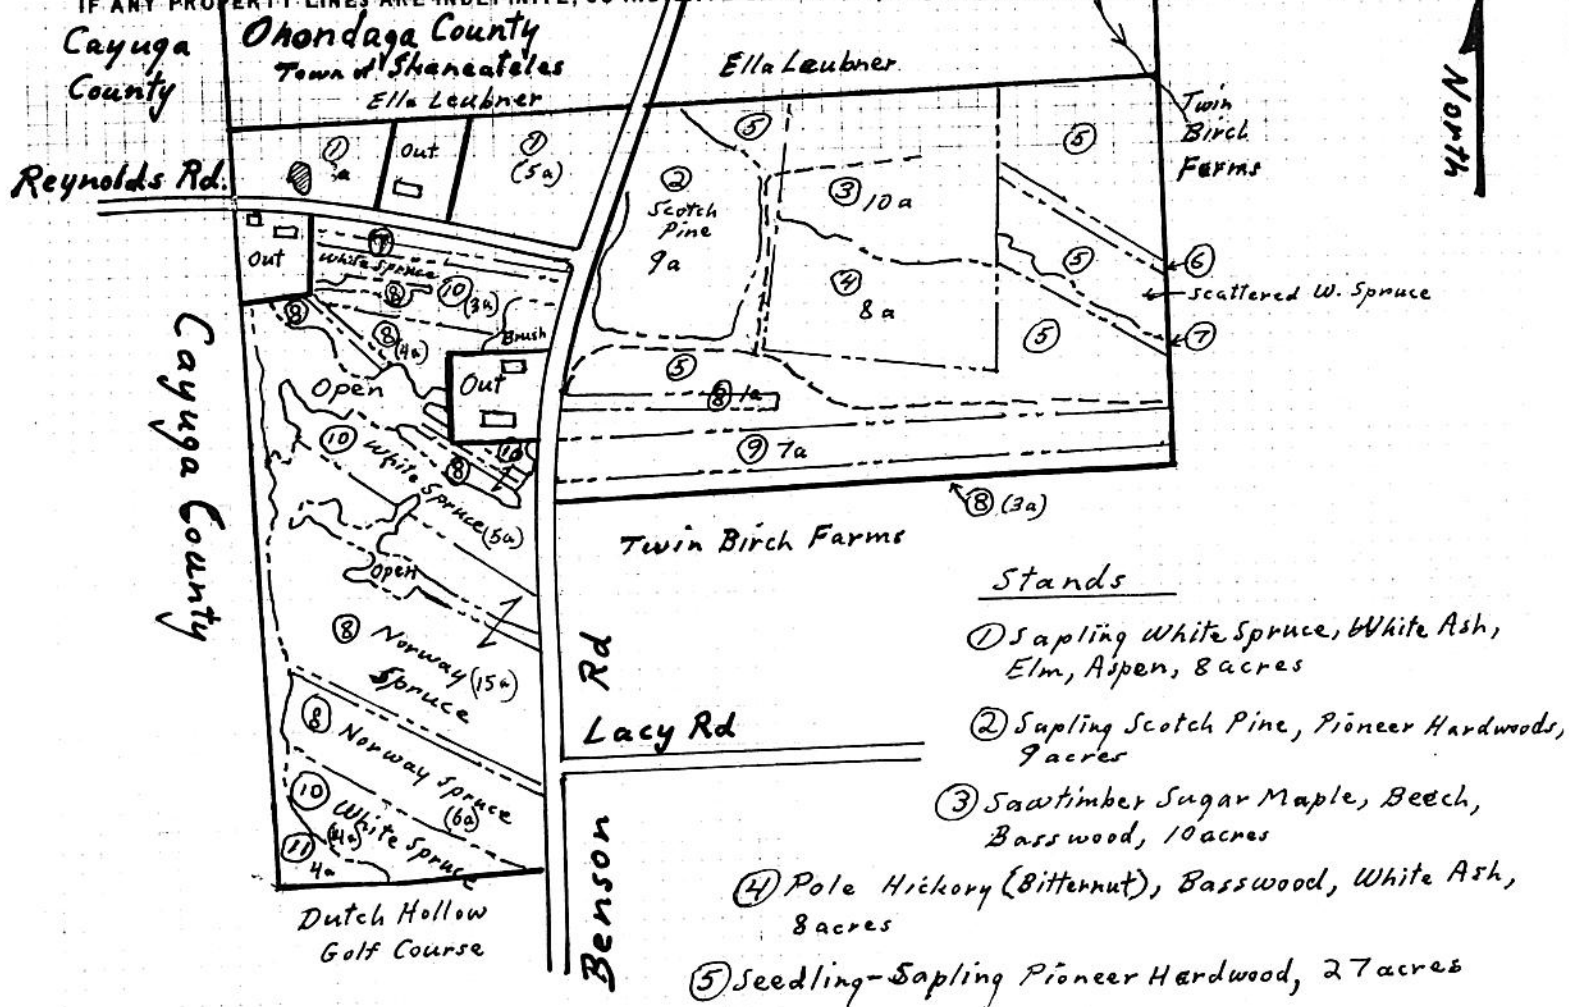 IF ANY PROPERTY LINES ARE INDEFINITE, SO
Cayuga
County
Onondaga County
Town of Skaneateles
Ella Leubner
Ella Leubner
Twin
Birch
Farms
North
Reynolds Rd.
①
Out
①
(5a)
⑤
②
Scotch
Pine
9a
③ 10a
④
8a
⑤
⑤
⑥
Scattered W. Spruce
⑦
⑤
⑤
⑧ 1a
⑨ 7a
⑧ (3a)
Twin Birch Farms
Out
White Spruce
⑧
⑩ (3a)
⑧
⑧ (4a)
Brush
Out
Open
⑩ White Spruce (5a)
⑧
⑩
Open
⑧ Norway (15a)
Spruce
⑧ Norway Spruce
(6a)
⑩ White Spruce
(4a)
⑪ 4a
Cayuga County
Dutch Hollow
Golf Course
Benson Rd
Lacy Rd
Stands
① Sapling White Spruce, White Ash,
Elm, Aspen, 8 acres
② Sapling Scotch Pine, Pioneer Hardwoods,
9 acres
③ Sawtimber Sugar Maple, Beech,
Basswood, 10 acres
④ Pole Hickory (Bitternut), Basswood, White Ash,
8 acres
⑤ Seedling-Sapling Pioneer Hardwood, 27 acres